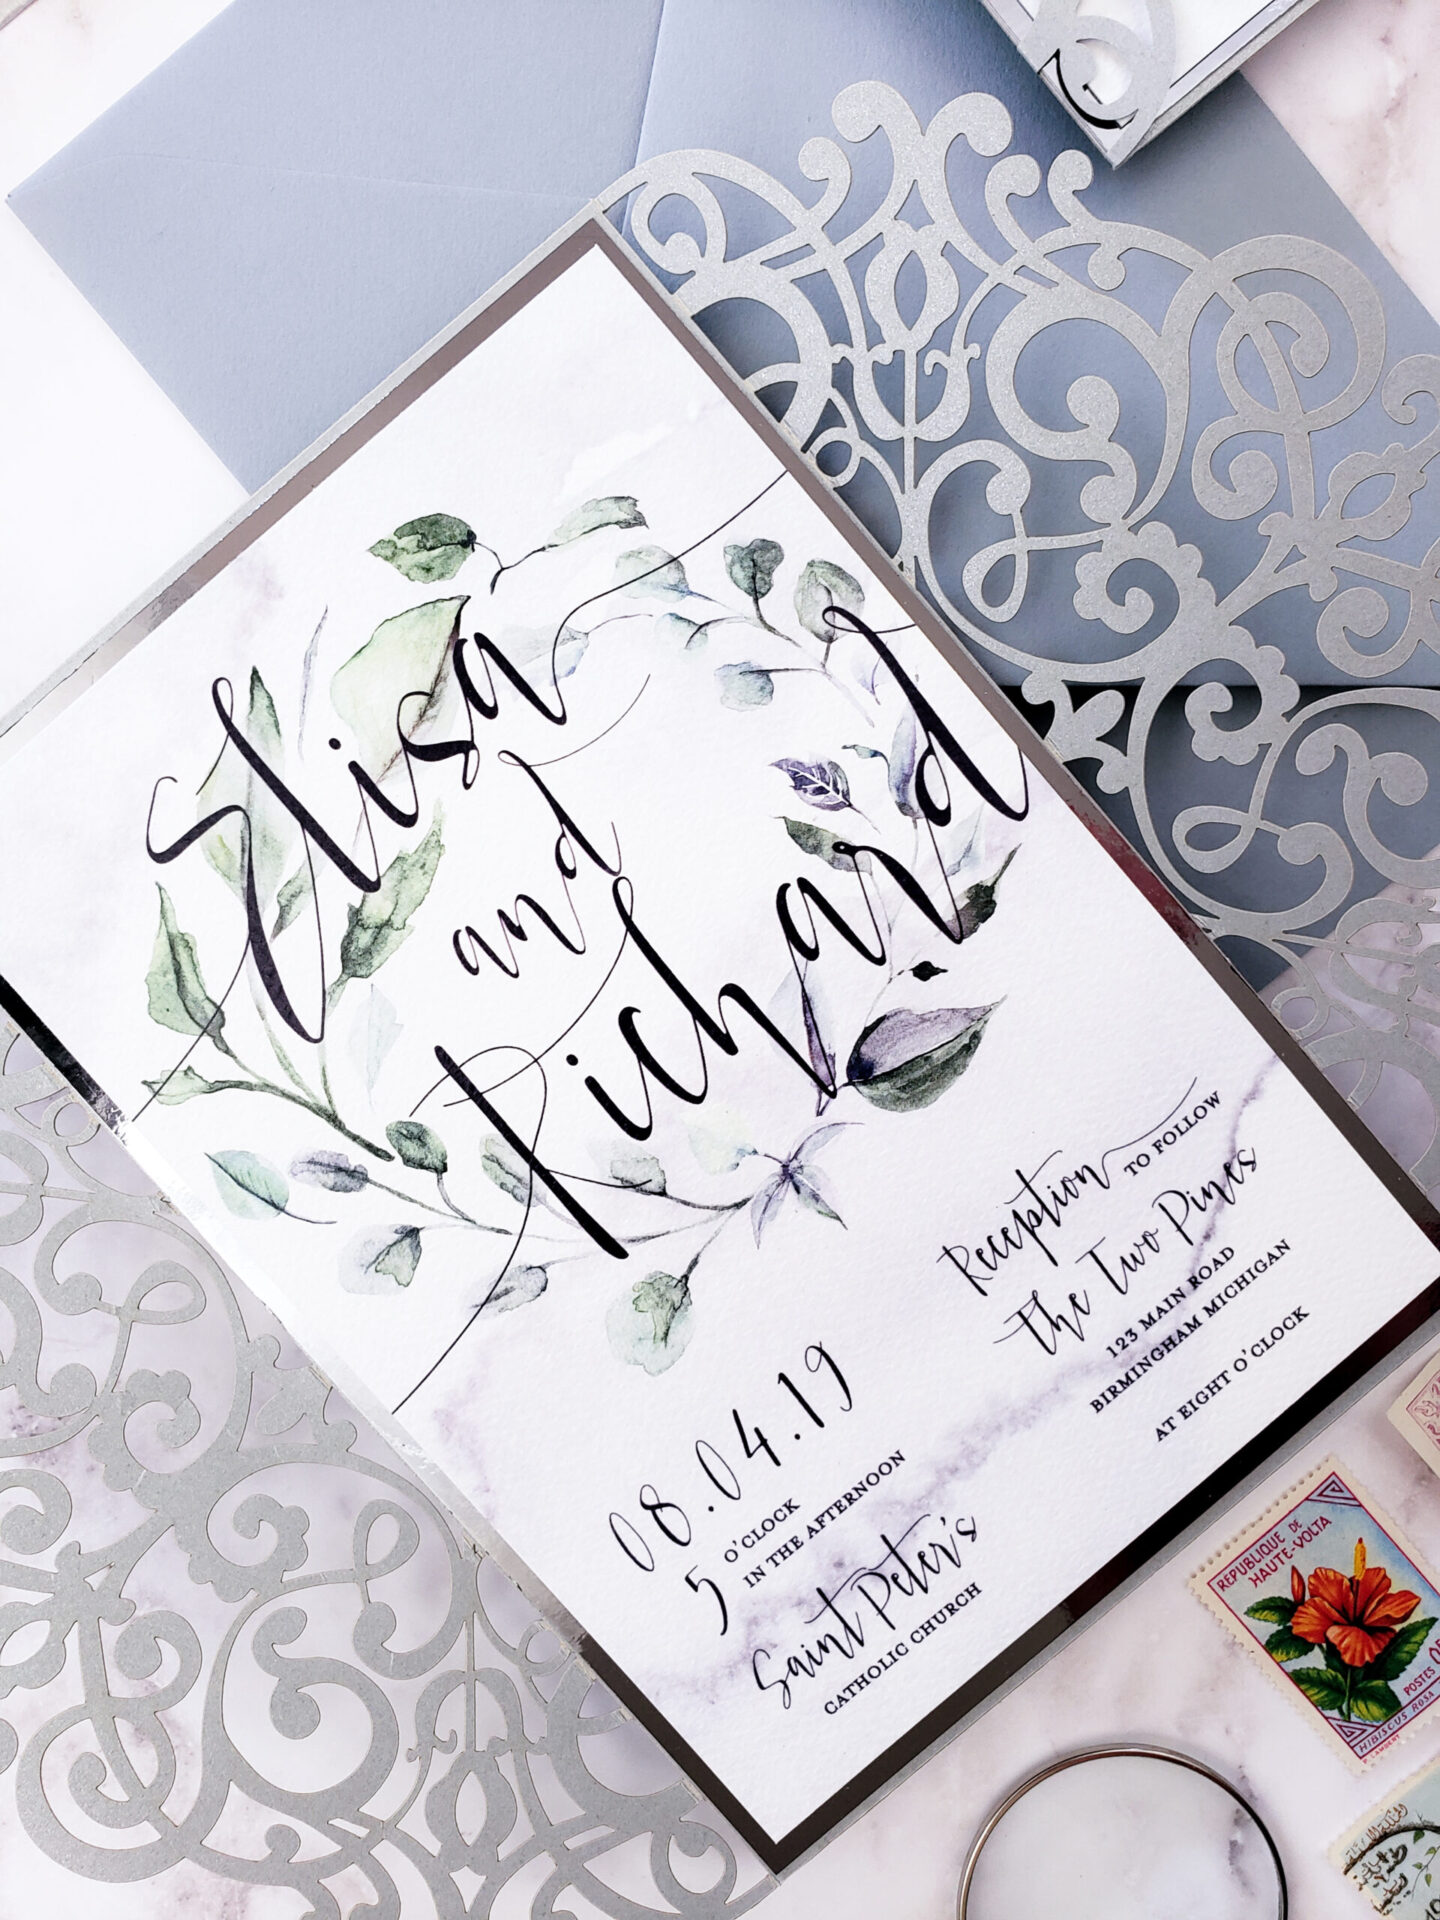 Elisa
and
Richard
08.04.19
5 O'CLOCK
IN THE AFTERNOON
Saint Peter's
CATHOLIC CHURCH
Reception TO FOLLOW
The Two Pines
123 MAIN ROAD
BIRMINGHAM MICHIGAN
AT EIGHT O'CLOCK
REPUBLIQUE DE
HAUTE-VOLTA
POSTES
HIBISCUS ROSA
P. LAMBERT